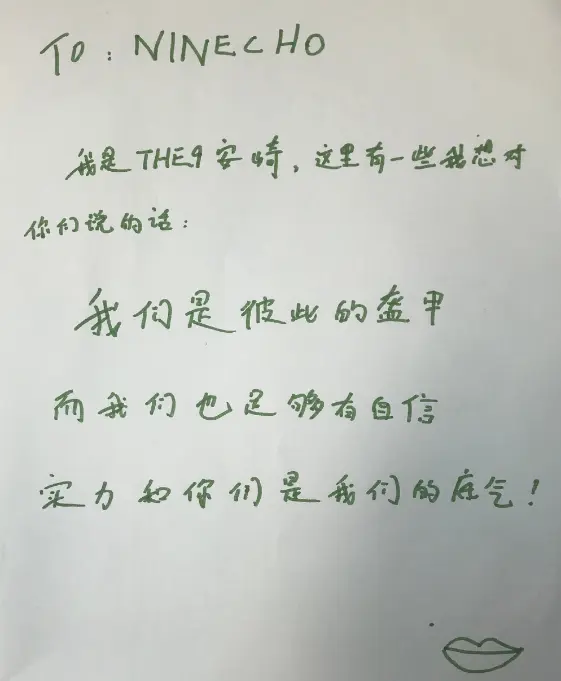 TO: NINECHO
我是THE9安崎，这里有一些我想对
你们说的话：
我们是彼此的盔甲
而我们也足够有自信
实力和你们是我们的底气！